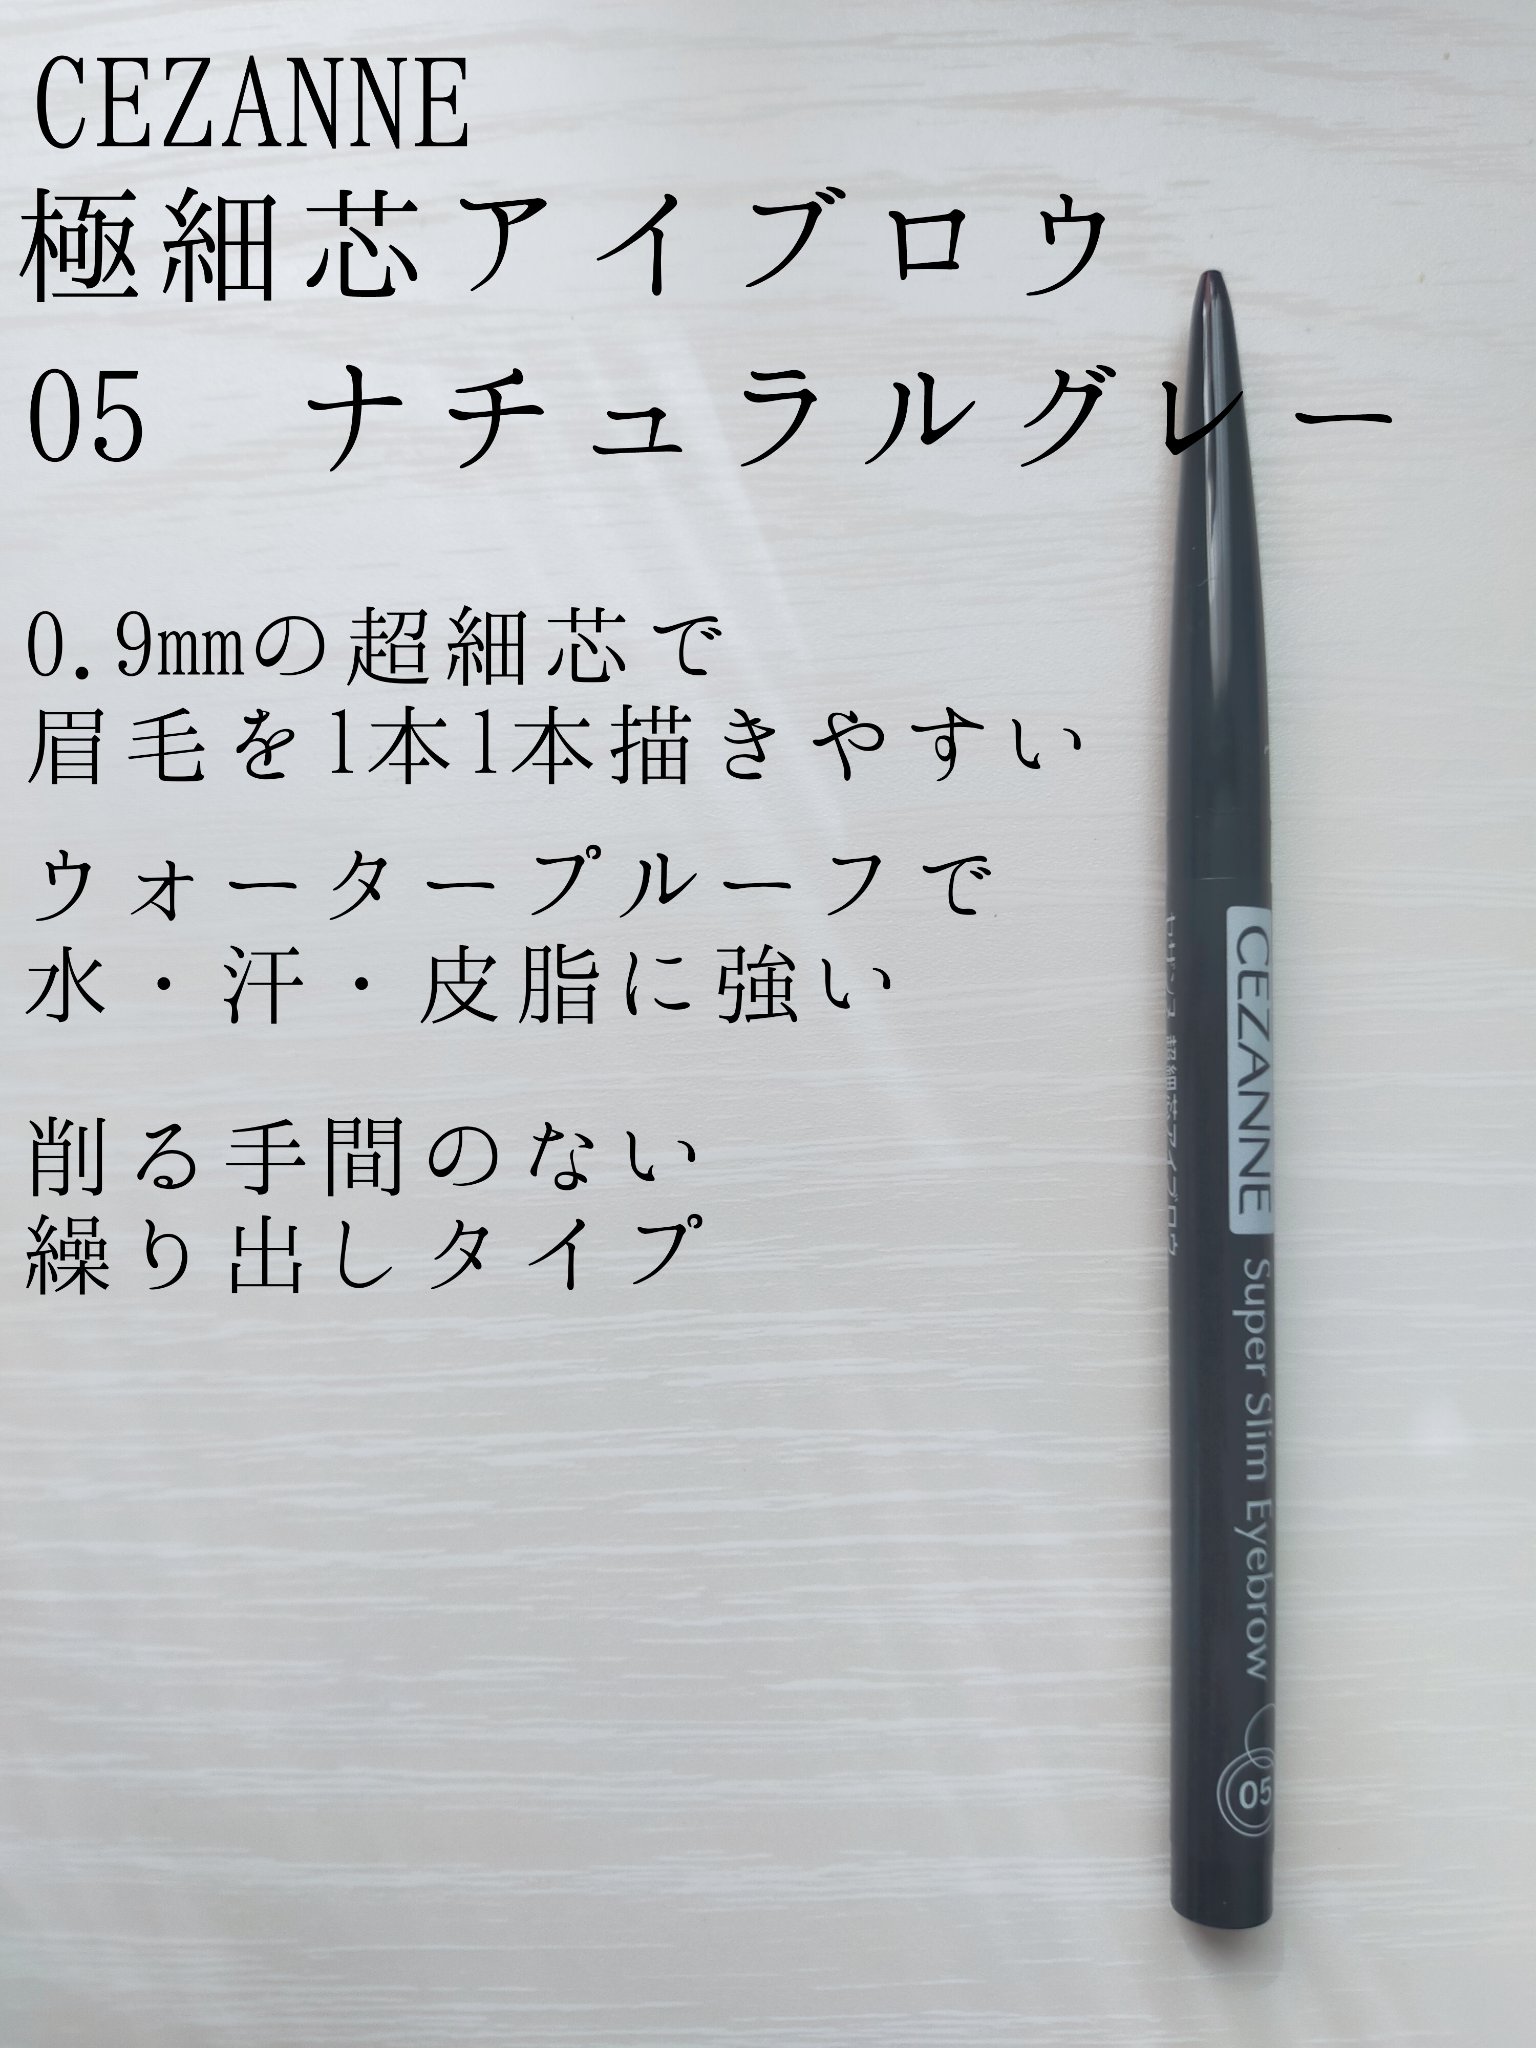 CEZANNE
極細芯アイブロウ
05　ナチュラルグレー
0.9mmの超細芯で
眉毛を1本1本描きやすい
ウォータープルーフで
水・汗・皮脂に強い
削る手間のない
繰り出しタイプ
セザンヌ 超細芯アイブロウ
CEZANNE Super Slim Eyebrow 05